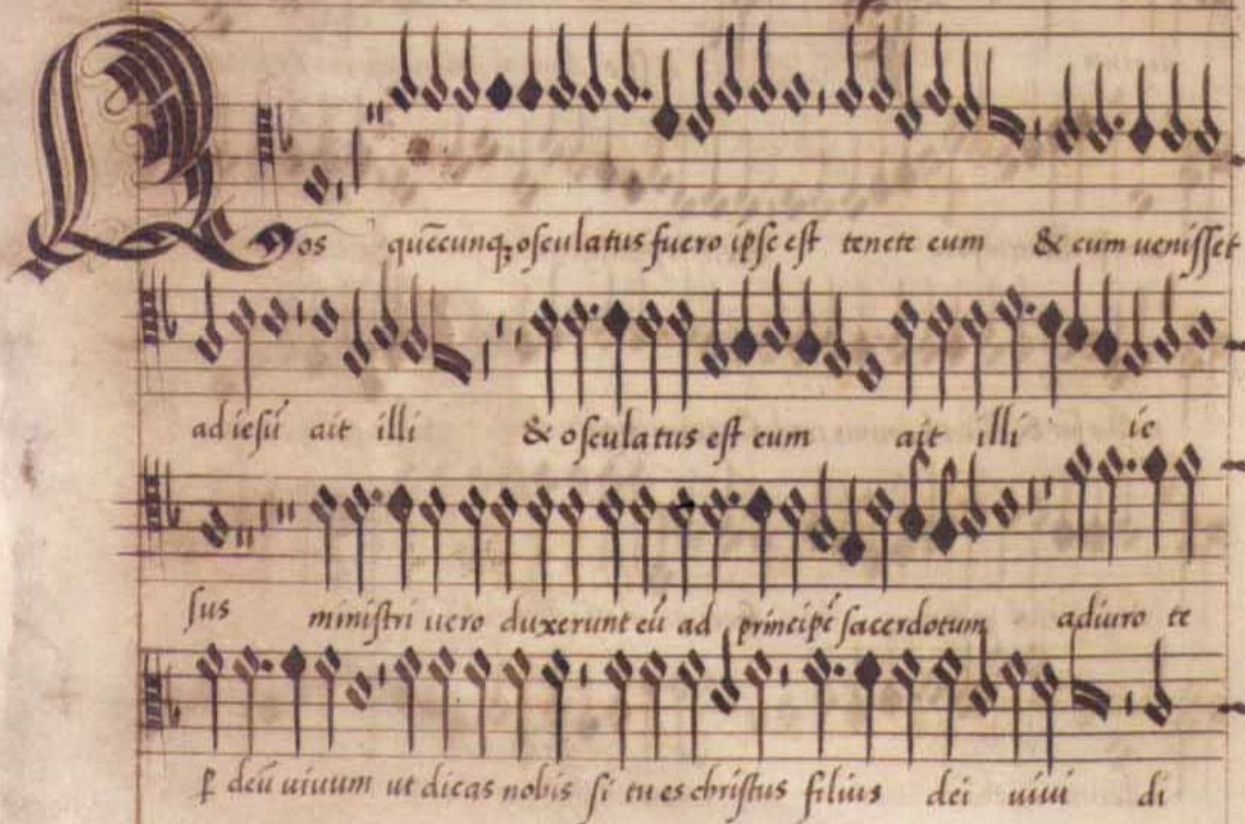 Nos quēcunqꝫ osculatus fuero ipse est tenete eum & cum uenisset
ad iesū ait illi & osculatus est eum ait illi ie
sus ministri uero duxerunt eū ad principē sacerdotum adiuro te
ꝑ deū uiuum ut dicas nobis si tu es christus filius dei uiui di